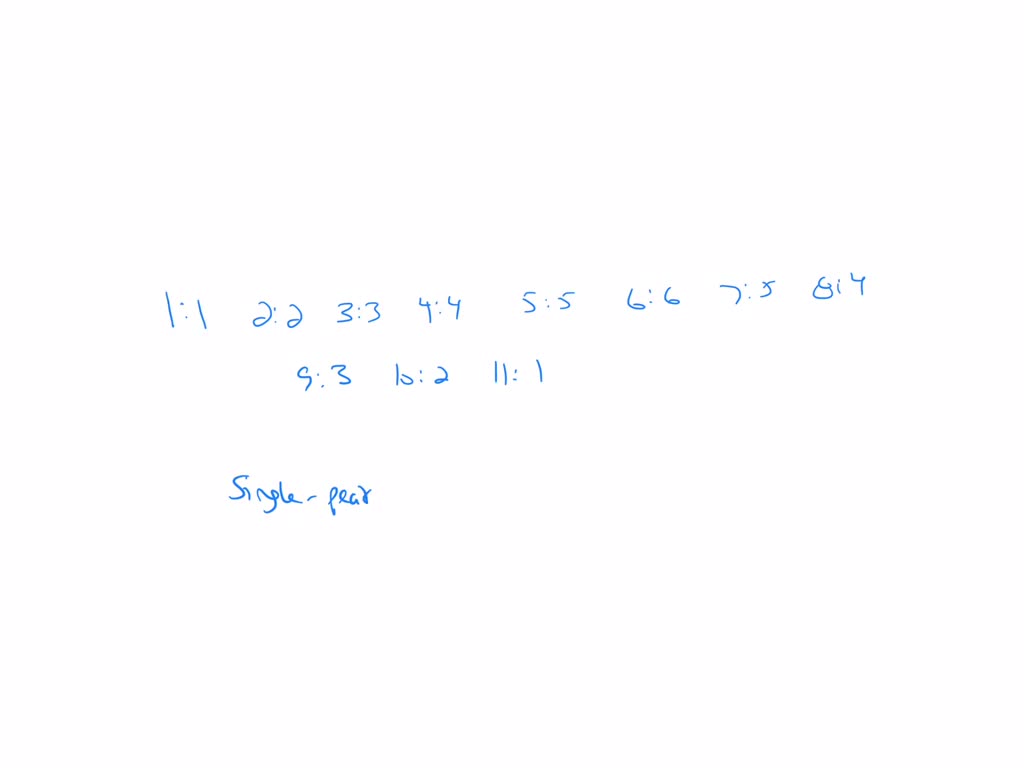 1:1 2:2 3:3 4:4 5:5 6:6 7:5 8:4
9:3 10:2 11:1
Single-peak